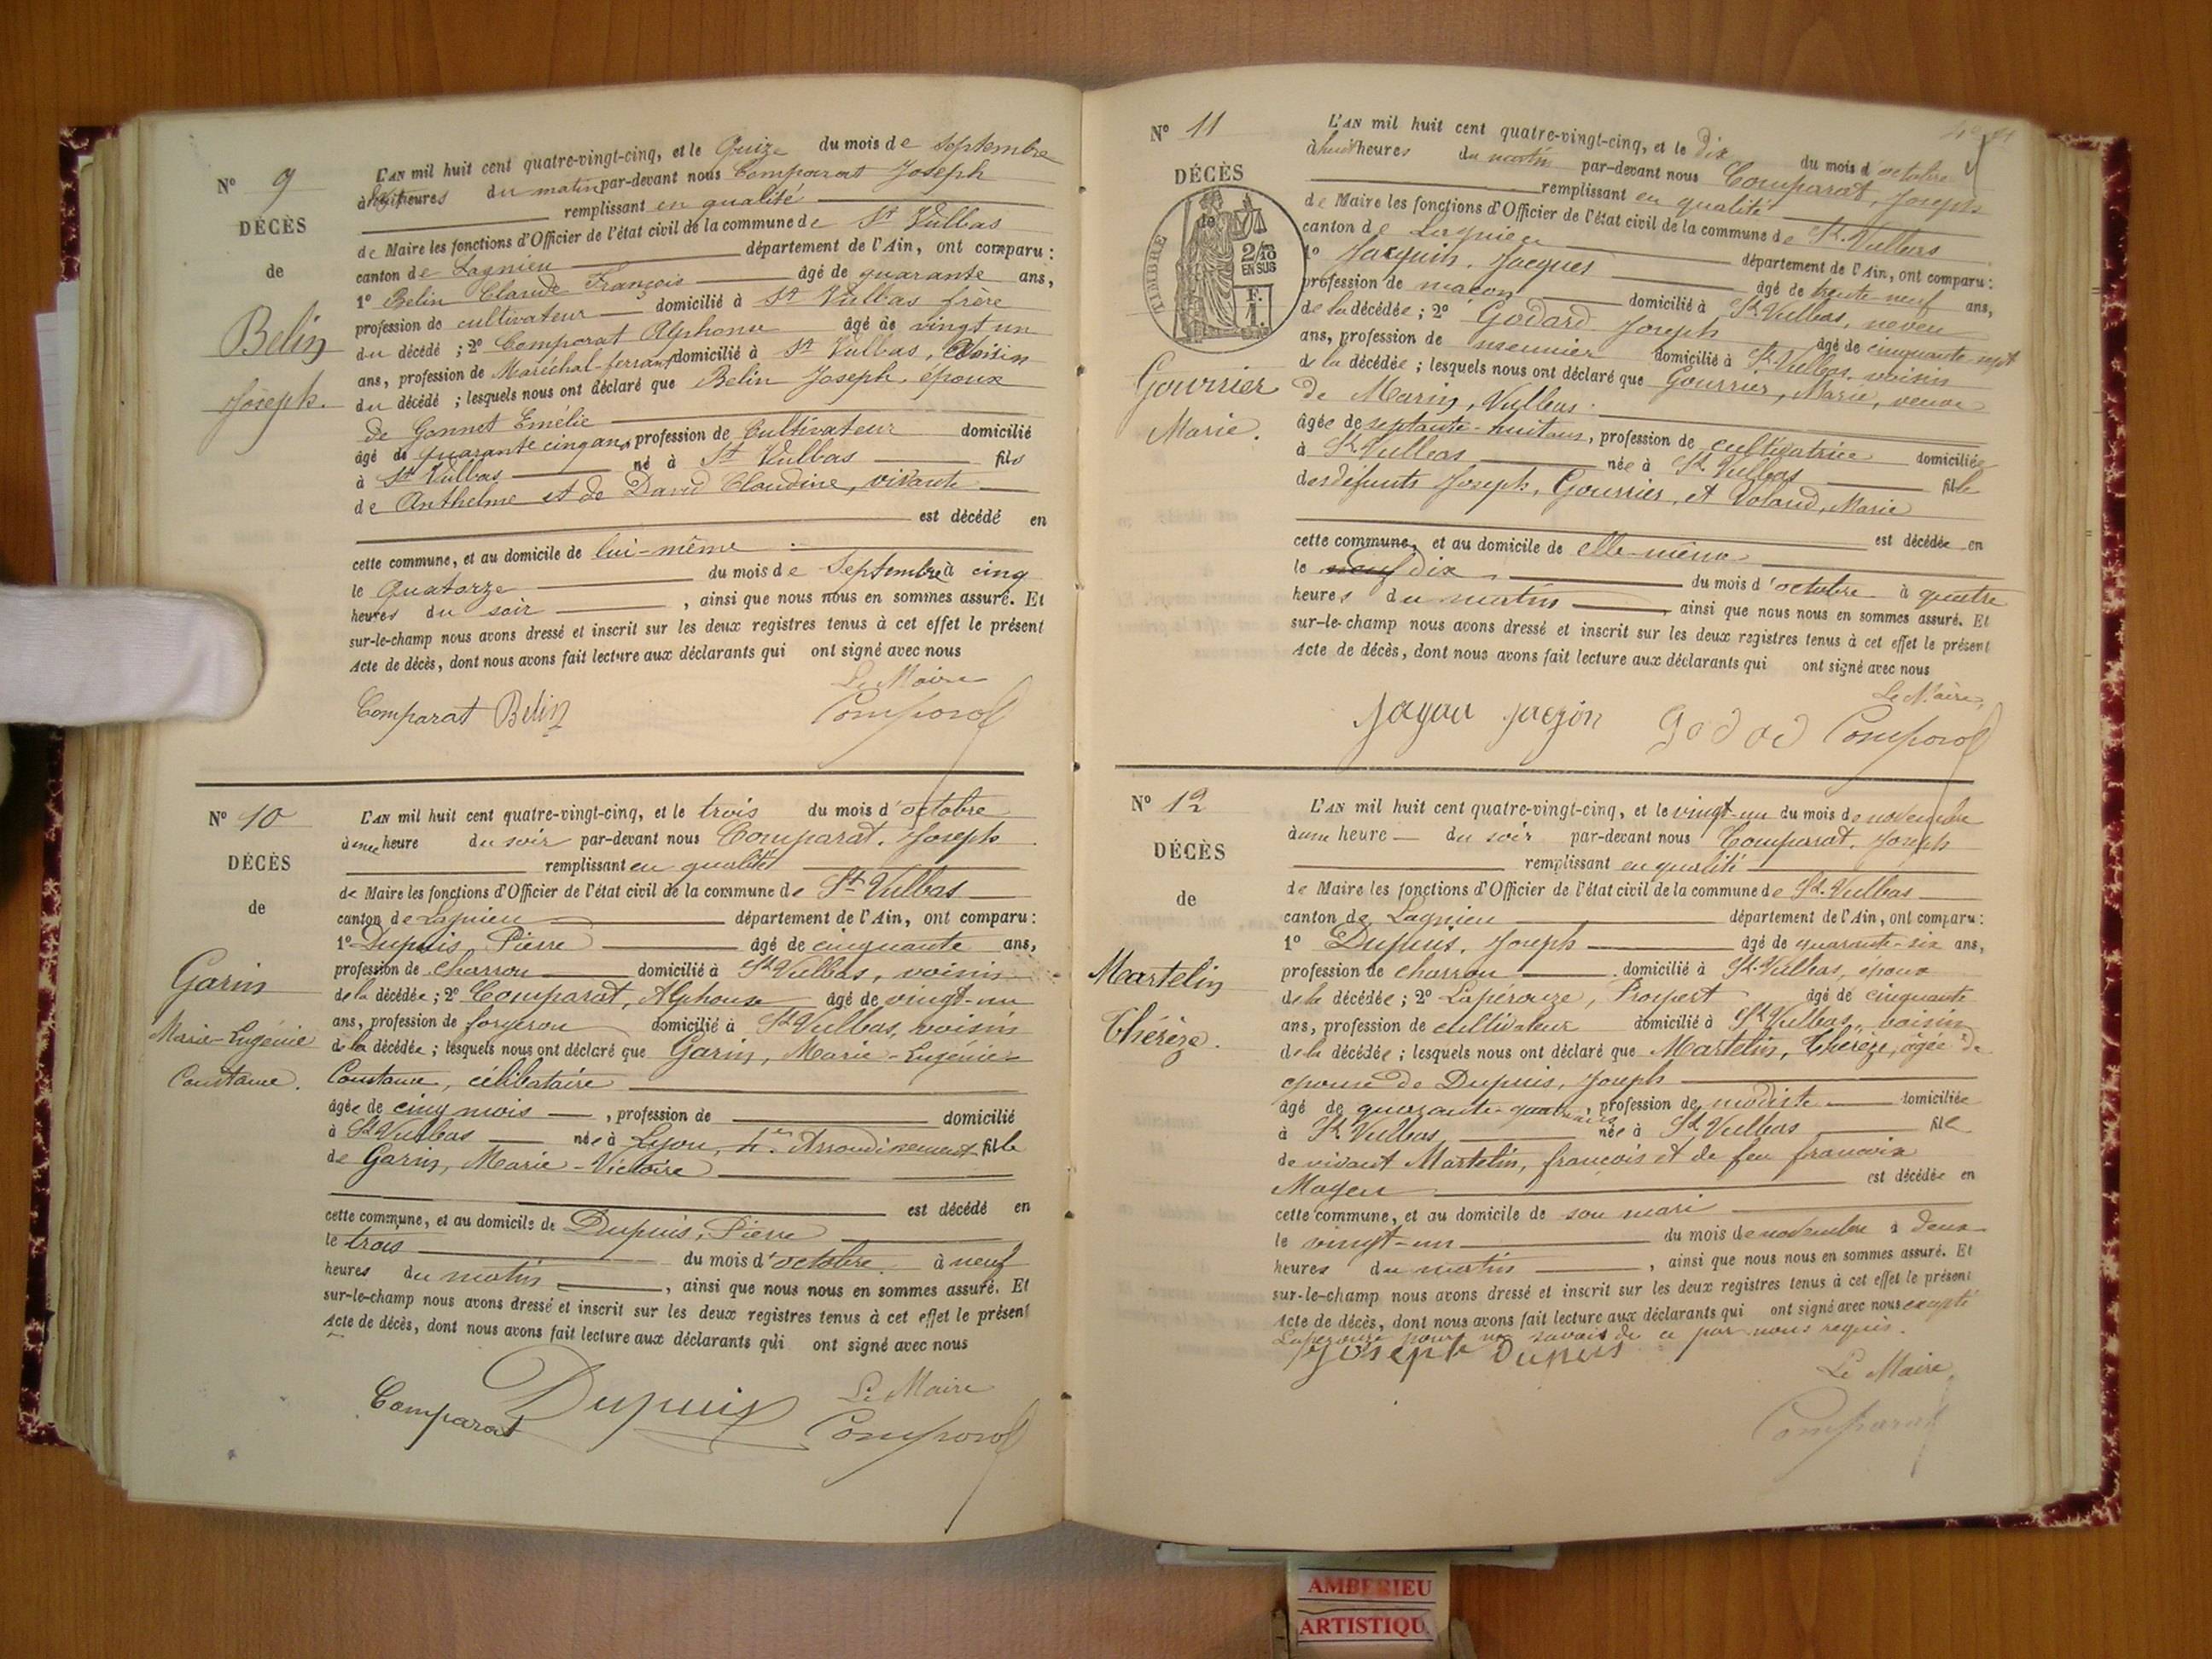 N° 9
DÉCÈS
de
Belin
Joseph.
L'AN mil huit cent quatre-vingt-cinq, et le Quize du mois de Septembre
à huit heures du matin par-devant nous Comparat Joseph
remplissant en qualité
de Maire les fonctions d'Officier de l'état civil de la commune de St Vulbas
canton de Lagnieu département de l'Ain, ont comparu :
1° Belin Claude François âgé de quarante ans,
profession de cultivateur domicilié à St Vulbas frère
du décédé ; 2° Comparat Alphonse âgé de vingt un
ans, profession de Maréchal-ferrant domicilié à St Vulbas, voisin
du décédé ; lesquels nous ont déclaré que Belin Joseph, époux
de Gonnet Emélie
âgé de quarante cinq ans, profession de Cultivateur domicilié
à St Vulbas né à St Vulbas fils
de Anthelme et de David Claudine, vivante
est décédé en
cette commune, et au domicile de lui-même
le Quatorze du mois de Septembre à cinq
heures du soir , ainsi que nous nous en sommes assuré. Et
sur-le-champ nous avons dressé et inscrit sur les deux registres tenus à cet effet le présent
Acte de décès, dont nous avons fait lecture aux déclarants qui ont signé avec nous
Le Maire
Comparat Belin Comparat
N° 10
DÉCÈS
de
Garin
Marie-Eugénie
Constance.
L'AN mil huit cent quatre-vingt-cinq, et le trois du mois d'octobre
à une heure du soir par-devant nous Comparat, Joseph
remplissant en qualité
de Maire les fonctions d'Officier de l'état civil de la commune de St Vulbas
canton de Lagnieu département de l'Ain, ont comparu :
1° Dupuis, Pierre âgé de cinquante ans,
profession de charron domicilié à St Vulbas, voisin
de la décédée ; 2° Comparat, Alphonse âgé de vingt-un
ans, profession de forgeron domicilié à St Vulbas, voisin
de la décédée ; lesquels nous ont déclaré que Garin, Marie-Eugénie
Constance, célibataire
âgée de cinq mois , profession de domicilié
à St Vulbas née à Lyon, 4e Arrondissement fille
de Garin, Marie-Victoire
est décédé en
cette commune, et au domicile de Dupuis, Pierre
le trois du mois d'octobre à neuf
heures du matin , ainsi que nous nous en sommes assuré. Et
sur-le-champ nous avons dressé et inscrit sur les deux registres tenus à cet effet le présent
Acte de décès, dont nous avons fait lecture aux déclarants qui ont signé avec nous
Le Maire
Comparat Dupuis Comparat
N° 11
DÉCÈS
TIMBRE
2/10
EN SUS
F.
1.
Gourrier
Marie.
L'AN mil huit cent quatre-vingt-cinq, et le dix du mois d'octobre
à huit heures du matin par-devant nous Comparat, Joseph
remplissant en qualité
de Maire les fonctions d'Officier de l'état civil de la commune de St. Vulbas
canton de Lagnieu département de l'Ain, ont comparu :
1° Jacquin, Jacques âgé de trente-neuf ans,
profession de maçon domicilié à St Vulbas, neveu
de la décédée ; 2° Godard Joseph âgé de cinquante-sept
ans, profession de meunier domicilié à St Vulbas, voisin
de la décédée ; lesquels nous ont déclaré que Gourrier, Marie, veuve
de Marin, Vulbas.
âgée de septante-huit ans, profession de cultivatrice domiciliée
à St Vulbas née à St Vulbas fille
des défunts Joseph, Gourrier, et Voland, Marie
est décédée en
cette commune, et au domicile de elle-même
le neuf dix du mois d'octobre à quatre
heures du matin , ainsi que nous nous en sommes assuré. Et
sur-le-champ nous avons dressé et inscrit sur les deux registres tenus à cet effet le présent
Acte de décès, dont nous avons fait lecture aux déclarants qui ont signé avec nous
Le Maire,
Godad Comparat
N° 12
DÉCÈS
de
Martelin
Thérèze.
L'AN mil huit cent quatre-vingt-cinq, et le vingt-un du mois de novembre
à une heure du soir par-devant nous Comparat, Joseph
remplissant en qualité
de Maire les fonctions d'Officier de l'état civil de la commune de St. Vulbas
canton de Lagnieu département de l'Ain, ont comparu :
1° Dupuis, Joseph âgé de quarante-six ans,
profession de charron domicilié à St. Vulbas, époux
de la décédée ; 2° Lapérouze, Prospert âgé de cinquante
ans, profession de cultivateur domicilié à St Vulbas, voisin
de la décédée ; lesquels nous ont déclaré que Martelin, Thérèze, âgée de
épouse de Dupuis, Joseph
âgé de quarante-quatre ans, profession de modiste domiciliée
à St Vulbas née à St Vulbas fille
de vivant Martelin, françois et de feu françoise
Moyen est décédée en
cette commune, et au domicile de son mari
le vingt-un du mois de novembre à deux
heures du matin , ainsi que nous nous en sommes assuré. Et
sur-le-champ nous avons dressé et inscrit sur les deux registres tenus à cet effet le présent
Acte de décès, dont nous avons fait lecture aux déclarants qui ont signé avec nous excepté
Lapérouze pour ne savoir de ce par nous requis.
Joseph Dupuis
Le Maire,
Comparat
AMBERIEU
ARTISTIQU